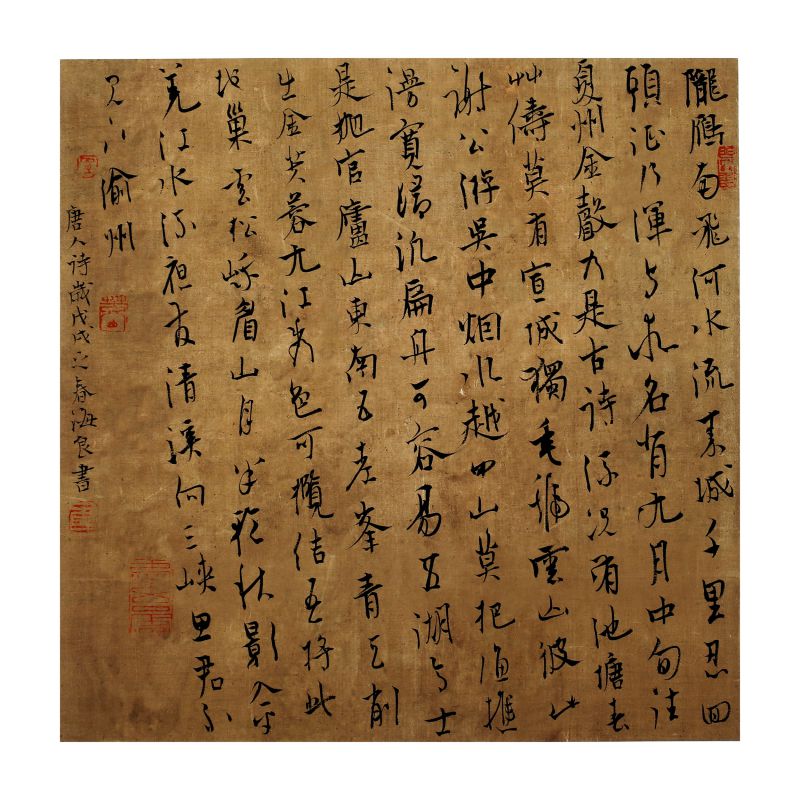 隴鴈南飛河水流秦城千里忍回
頭征行渾与求名背九月中旬往
夏州金聲乃是古詩流况有池塘春
艸儔莫有宣城獨垂號雲山彼此
謝公游吳中烟水越中山莫把漁樵
謾寬歸汎扁舟可容易五湖高士
是拋官廬山東南五老峯青天削
出金芙蓉九江秀色可攬結吾將此
地巢雲松峨眉山月半輪秋影入平
羌江水流夜發清溪向三峽思君不
見下渝州
唐人诗歲戊戌之春海良書